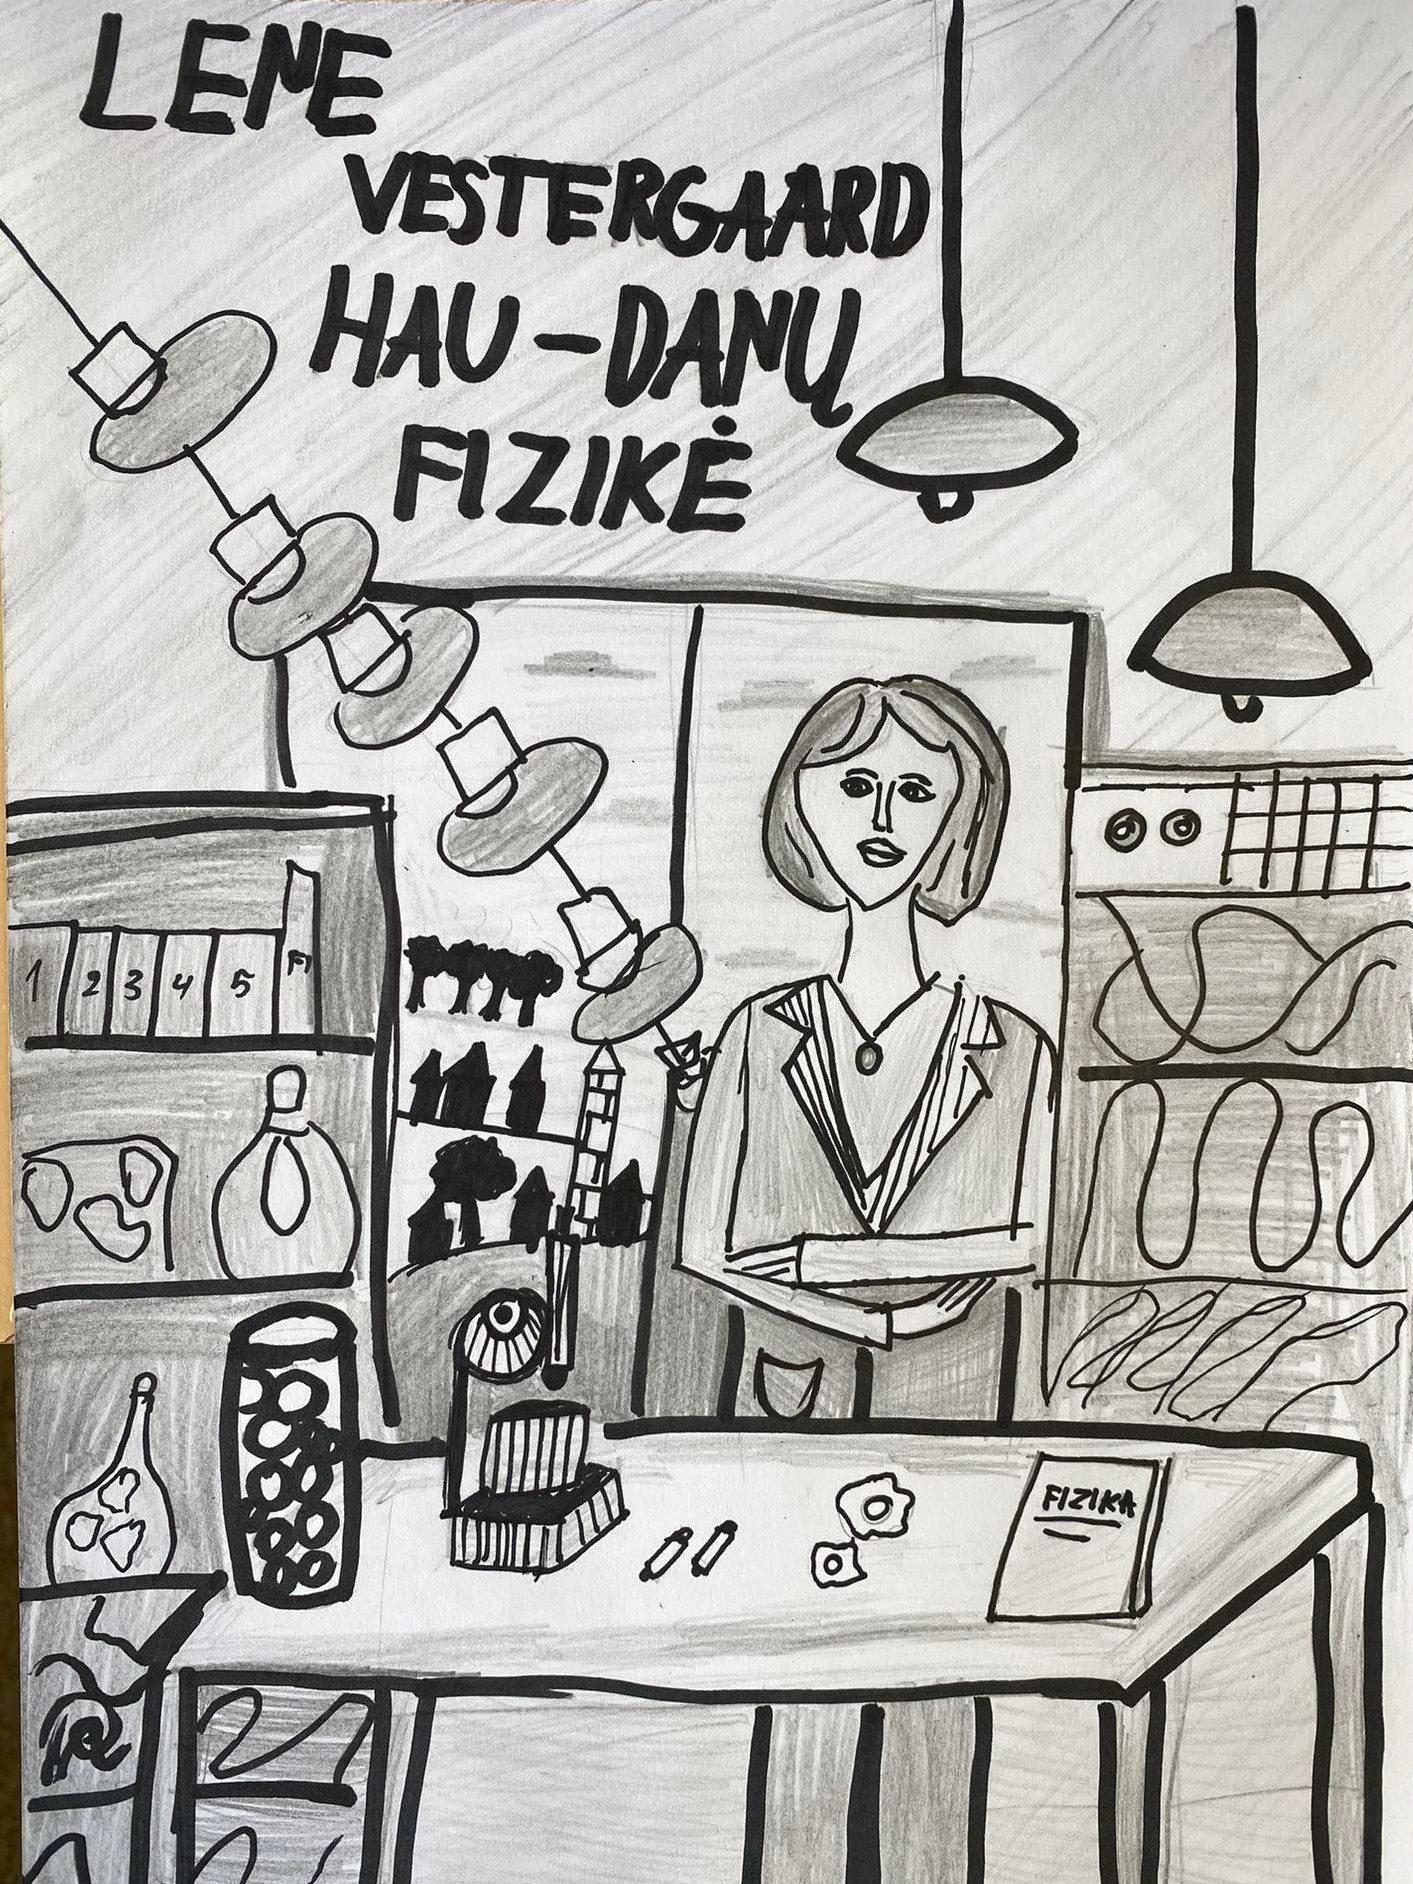 LENE
VESTERGAARD
HAU - DANŲ
FIZIKĖ
1 2 3 4 5
FIZIKA